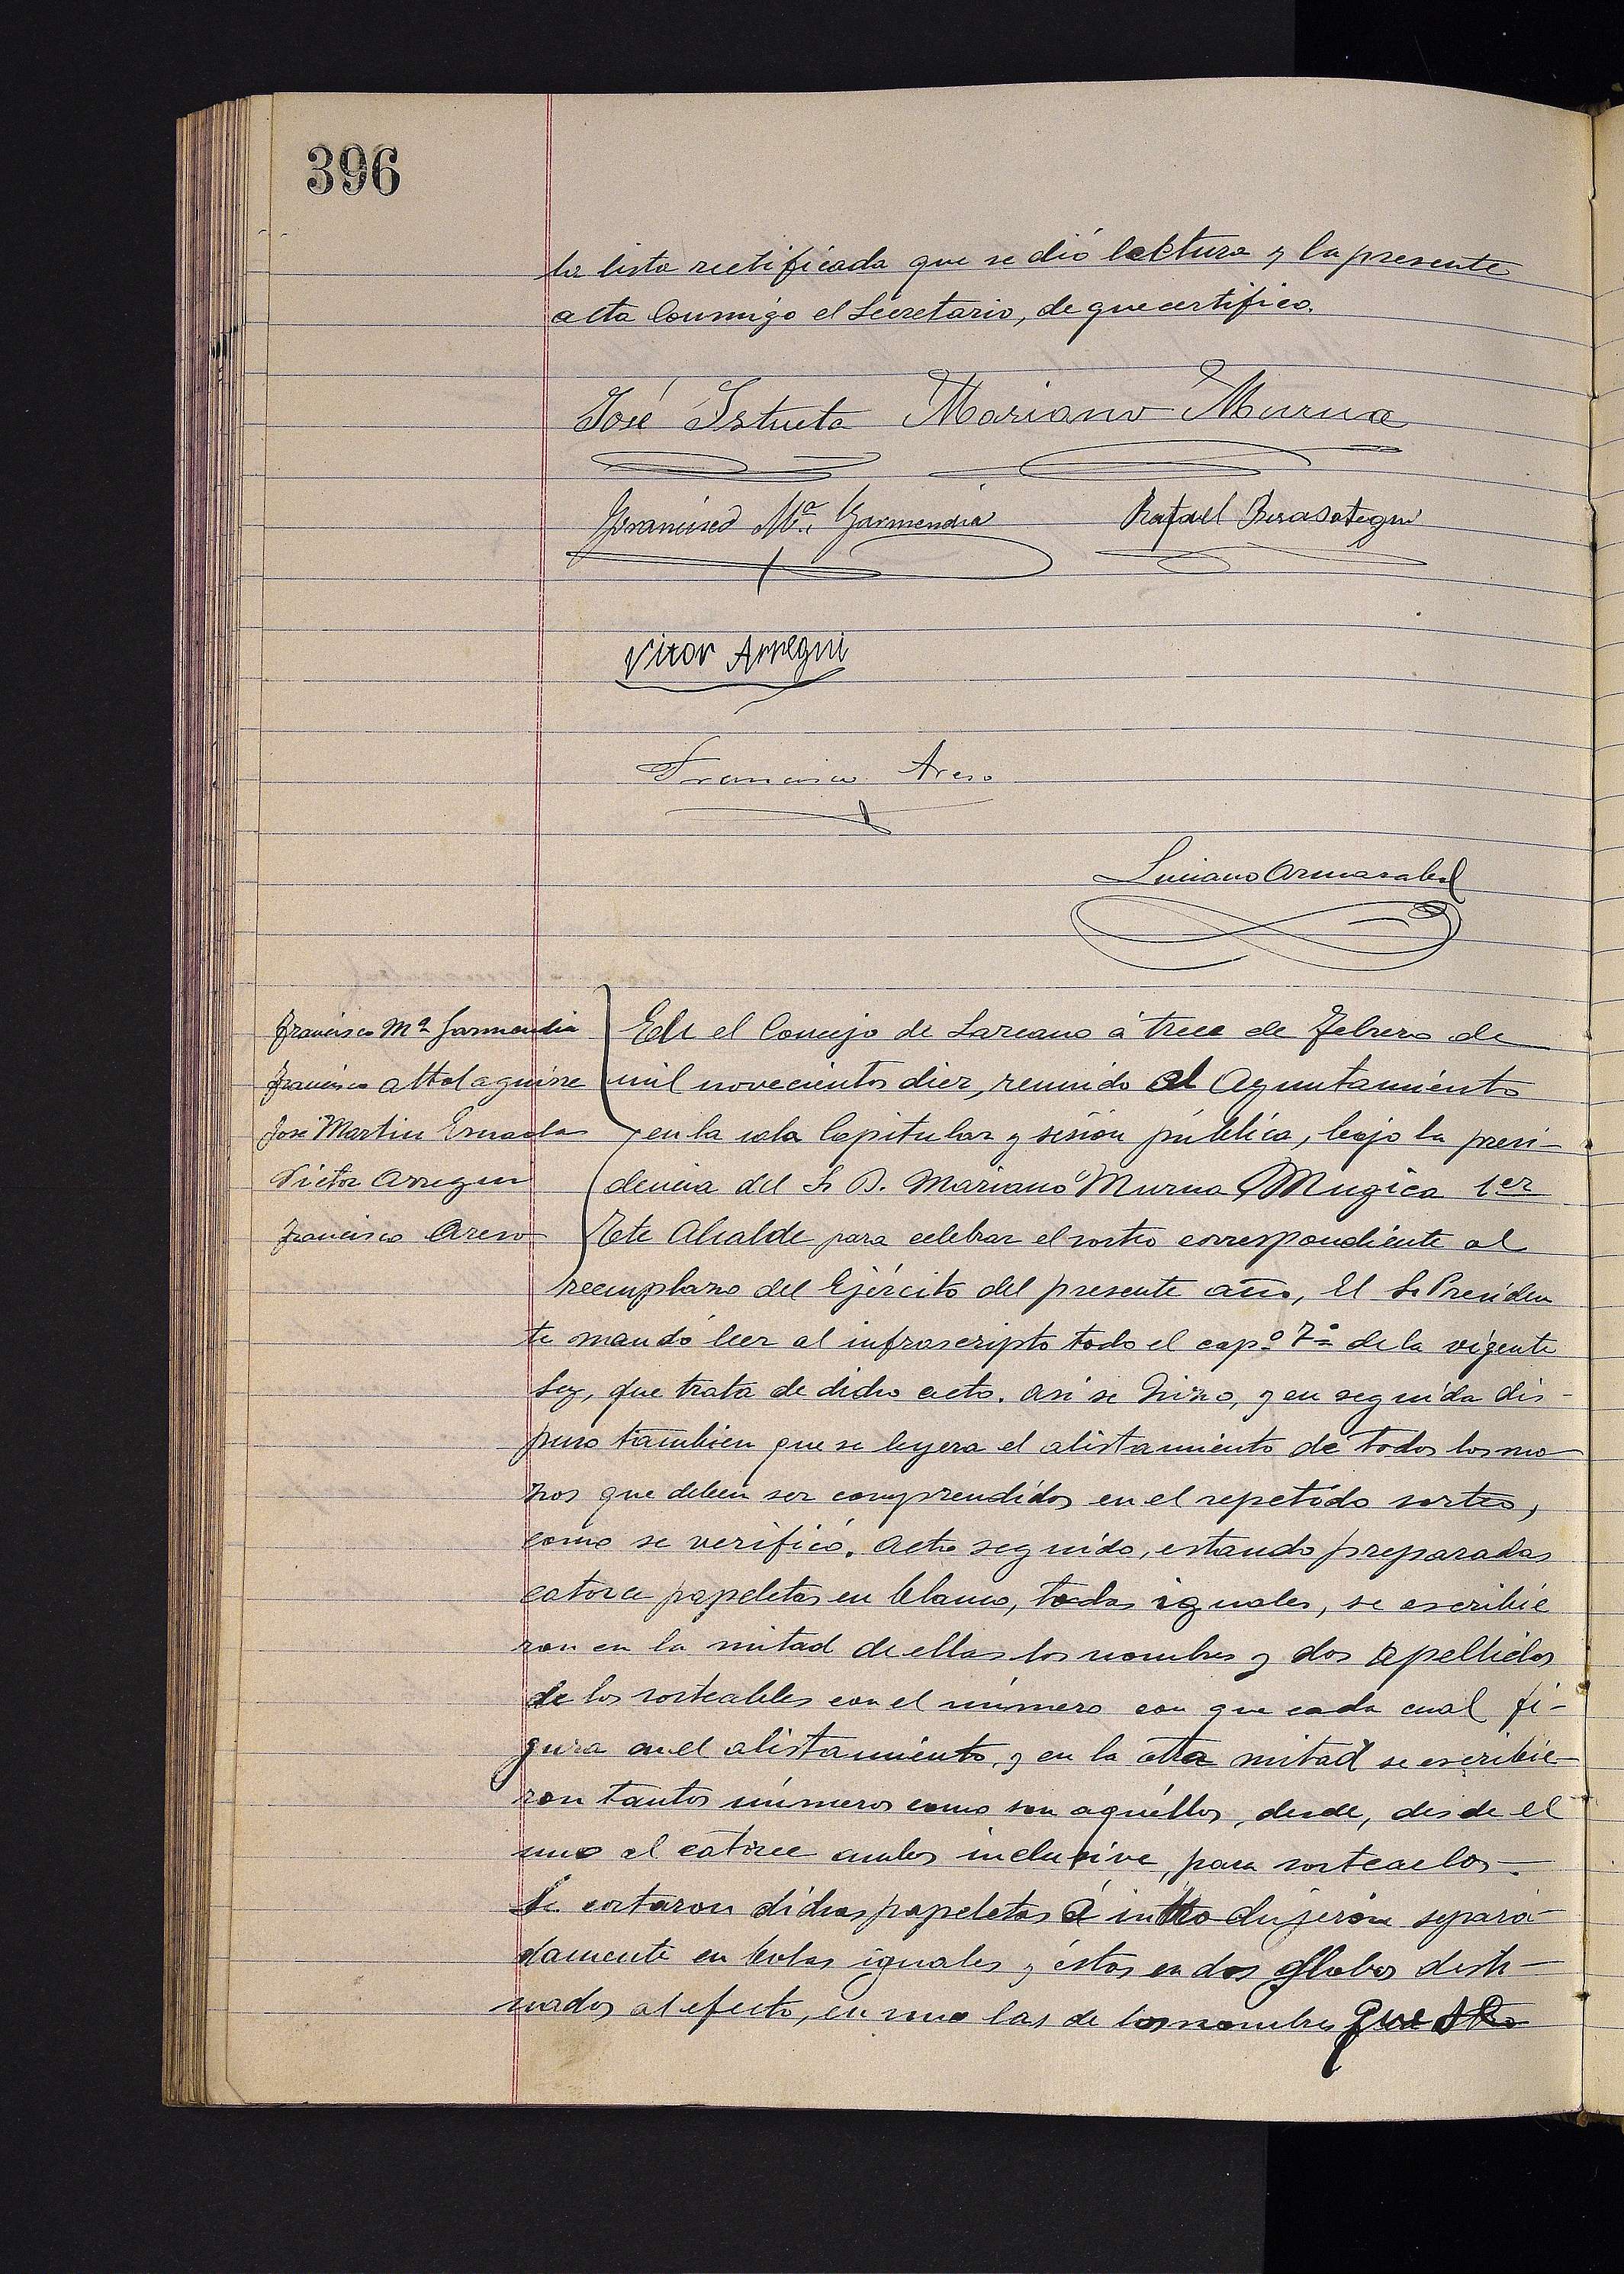 396
la lista rectificada que se dió lectura y la presente
acta conmigo el Secretario, de que certifico.
José Istueta Mariano Murua
Francisco Mª Garmendia Rafael Berasategui
Vitor Arregui
Francisco Areso
Luciano Ormazabal
Francisco Mª Garmendia
Francisco Altolaguirre
José Martin Esnaola
Victor Arregui
Francisco Areso
En el Concejo de Lazcano á trece de Febrero de
mil novecientos diez, reunido el Ayuntamiento
en la sala Capitular y sesión pública, bajo la presi-
dencia del Sr D. Mariano Murua Mugica 1er
Tte Alcalde para celebrar el sorteo correspondiente al
reemplazo del Ejército del presente año, El Sr Presiden
te mandó leer al infrascripto todo el capº 7º de la vigente
Ley, que trata de dicho acto. Asi se hizo, y en seguida dis-
puso tambien que se leyera el alistamiento de todos los mo
zos que deben ser comprendidos en el repetido sorteo,
como se verificó. Acto seguido, estando preparadas
catorce papeletas en blanco, todas iguales, se escribie
ron en la mitad de ellas los nombres y dos apellidos
de los sorteables con el número con que cada cual fi-
gura en el alistamiento, y en la otra mitad se escribie-
ron tantos números como son aquéllos, desde, desde el
uno al catorce ambos inclusive, para sortearlos.
Se cortaron dichas papeletas é introdujeron separa-
damente en bolas iguales y éstas en dos globos desti-
nados al efecto, en uno las de los nombres que